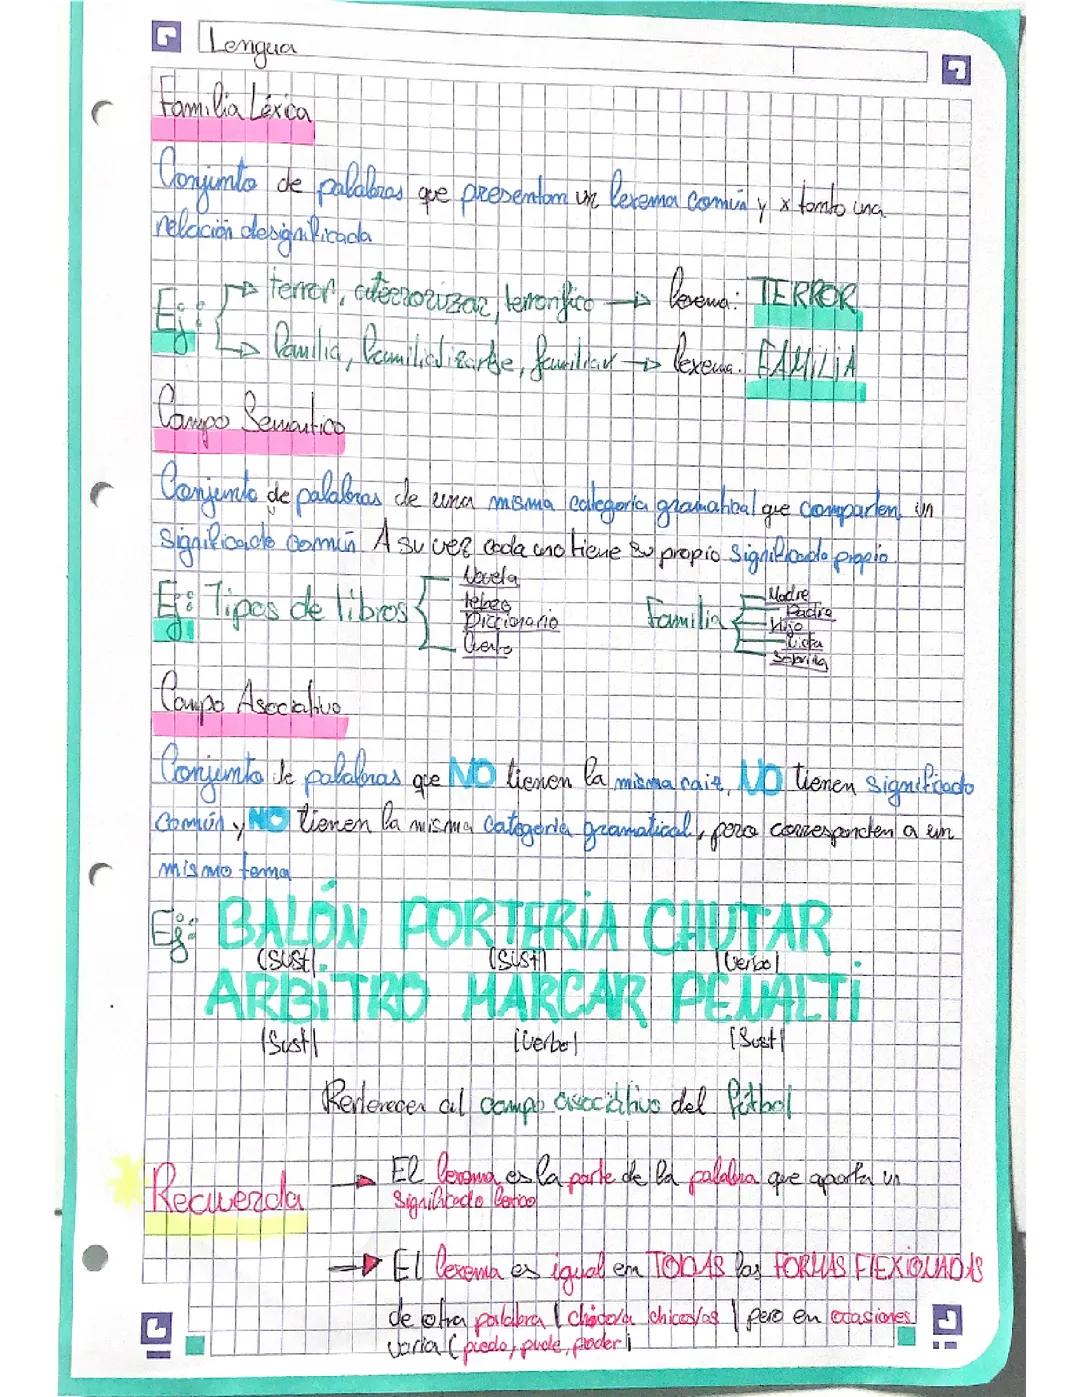 Lengua
Familia Léxica
Conjunto de palabras que presentan un lexema común y x tanto una
relación designificada
Ej: → terror, aterrorizar, terrorífico → lexema: TERROR
→ familia, familializarse, familiar → lexema: FAMILIA
Campo Semántico
Conjunto de palabras de una misma categoría gramatical que comparten un
significado común A su vez cada uno tiene su propio significado propio
Ej: Tipos de libros
Novela
Diccionario
Cuento
Familia
Madre
Padre
Hijo
Sobrina
Campo Asociativo
Conjunto de palabras que NO tienen la misma raiz, NO tienen significado
común y NO tienen la misma categoría gramatical, pero corresponden a un
mismo tema
Ej: BALÓN PORTERIA CHUTAR
(Sust) (Sust) (Verbo)
ARBITRO MARCAR PENALTI
(Sust) (Verbo) (Sust)
al campo asociativo del fútbol
Recuerda → El lexema es la parte de la palabra que aporta un
significado léxico
→ El lexema es igual en TODAS las FORMAS FLEXIONADAS
de otra palabra (chico/a chicos/as) pero en ocasiones
varia (puedo, pude, poder)